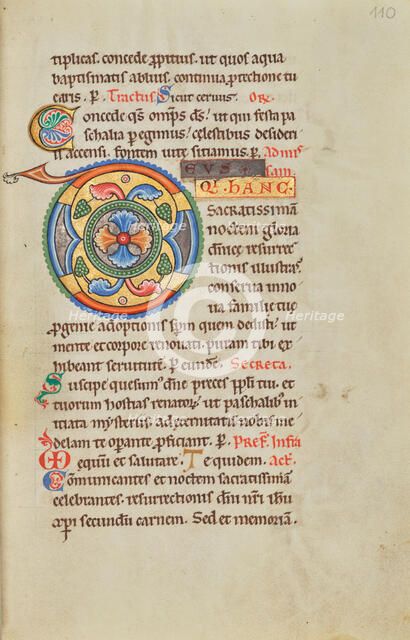 110
tiplicas. concede ꝓpitius. ut quos aqua
baptismatis abluis. continua ꝓtectione tu
earis. P. Tractus. Sicut ceruus. Or̄.
Concede q̄s om̄ps d̄s. ut qui festa pa
schalia ꝑegimus. celestibus desideri
is accensi. fontem uite sitiamus. P. Ad mis
sam.
DEUS
QI HANC.
Sacratissimā
noctem gloria
dn̄ice resurrec
tionis illustras.
conserua in no
ua familie tue
ꝓgenie adoptionis sp̄m quem dedisti. ut
mente et corpore renouati. puram tibi ex
hibeant seruitutē. P. eundē. Secreta.
Suscipe quesum᷒ dn̄e preces ppl̄i tui. et
tuorum hostias renatoꝝ. ut paschalib᷒ in
itiata mysteriis. ad eternitatis nobis me
delam te operante ꝓficiant. P. Pref. Infra
Equū et salutare. Te quidem. Act̄.
Communicantes et noctem sacratissimā
celebrantes. resurrectionis dn̄i nr̄i ih̄u
xp̄i secundū carnem. Sed et memoriam.
Heritage Heritage Heritage
Heritage Heritage Heritage